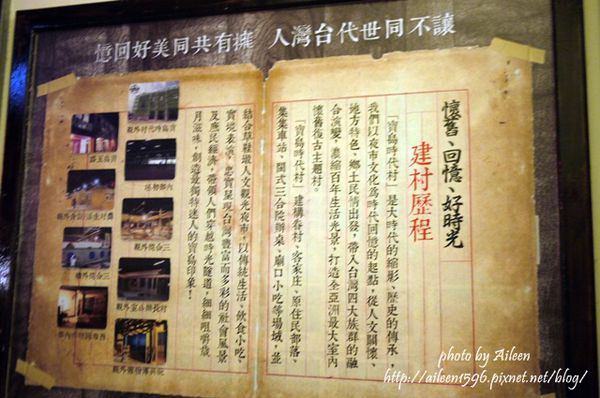 讓不同世代台灣人 擁有共同美好回憶
懷舊、回憶、好時光
建村歷程
「寶島時代村」是大時代的縮影、歷史的傳承
我們以夜市文化為時代回憶的起點，從人文關懷、
地方特色、鄉土民情出發，帶入台灣四大族群的融
合演變，濃縮百年生活光景，打造全亞洲最大室內
懷舊復古主題村。
「寶島時代村」建構眷村、客家庄、原住民部落、
集集車站、閩式三合院辦桌、廟口小吃等場域，並
結合草鞋墩人文觀光夜市，以傳統生活、飲食小吃、
實境表演，忠實呈現台灣豐富而多彩的社會風景
及庶民經濟，帶領人們穿越時光隧道，細細咀嚼歲
月滋味，創造並獨特迷人的寶島印象！
寶島時代村外觀
三合院外觀
村長辦公室外觀
photo by Aileen
http://aileen1596.pixnet.net/blog/